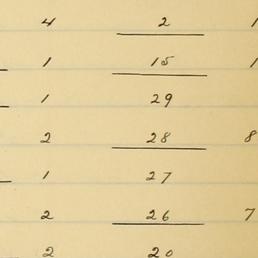 4 2 1
1 15 1
1 29
2 28 8
1 27
2 26 7
2 20